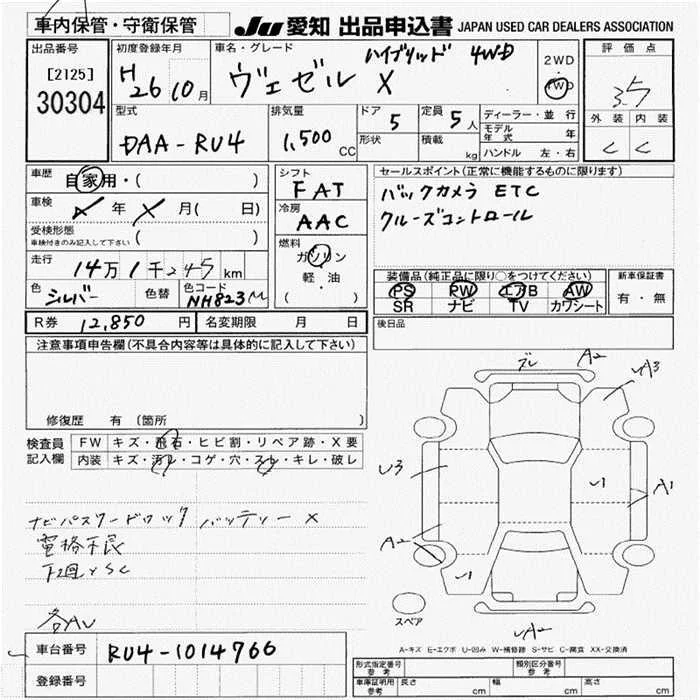 車内保管・守衛保管
JU 愛知 出品申込書 JAPAN USED CAR DEALERS ASSOCIATION
出品番号
[2125]
30304
初度登録年月
H26 10月
車名・グレード
ハイブリッド 4WD
ヴェゼル X
2WD
4WD
評価点
3.5
外装 内装
C C
型式
DAA-RU4
排気量
1,500 CC
ドア 5
形状
定員 5人
積載 kg
ディーラー・並行
モデル年式 年
ハンドル 左・右
車歴 自家用・( )
車検 年 月( 日)
受検形態
車検付きのみ記入して下さい ( )
走行 14万1千245 km
色 シルバー 色替 色コード NH823M
シフト
FAT
冷房
AAC
燃料
ガソリン
軽・油
( )
セールスポイント(正常に機能するものに限ります)
バックカメラ ETC
クルーズコントロール
装備品(純正品に限り○をつけてください)
PS PW エアB AW
SR ナビ TV カワシート
新車保証書
有・無
R券 12,850円 名変期限 月 日
後日品
注意事項申告欄(不具合内容等は具体的に記入して下さい)
修復歴 有 (箇所 )
検査員記入欄
FW キズ・飛石・ヒビ割・リペア跡・X要
内装 キズ・汚レ・コゲ・穴・スレ・キレ・破レ
ナビパスワードロック バッテリーX
電格不良
下廻りSC
各AU
A2
A3
U3
U1
A1
A2
U1
A2
スペア
A-キズ E-エクボ U-凹み W-補修跡 S-サビ C-腐食 XX-交換済
車台番号 RU4-1014766
登録番号
形式指定番号
参考
類別区分番号
参考
車庫証明用
参考
長さ cm 幅 cm 高さ cm